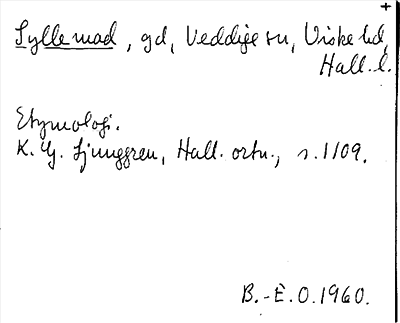 Syllemad, gd, Veddige sn, Viske hd,
Hall. l.
Etymologi.
K. G. Ljunggren, Hall. ortn., s. 1109.
B.-E.O. 1960.